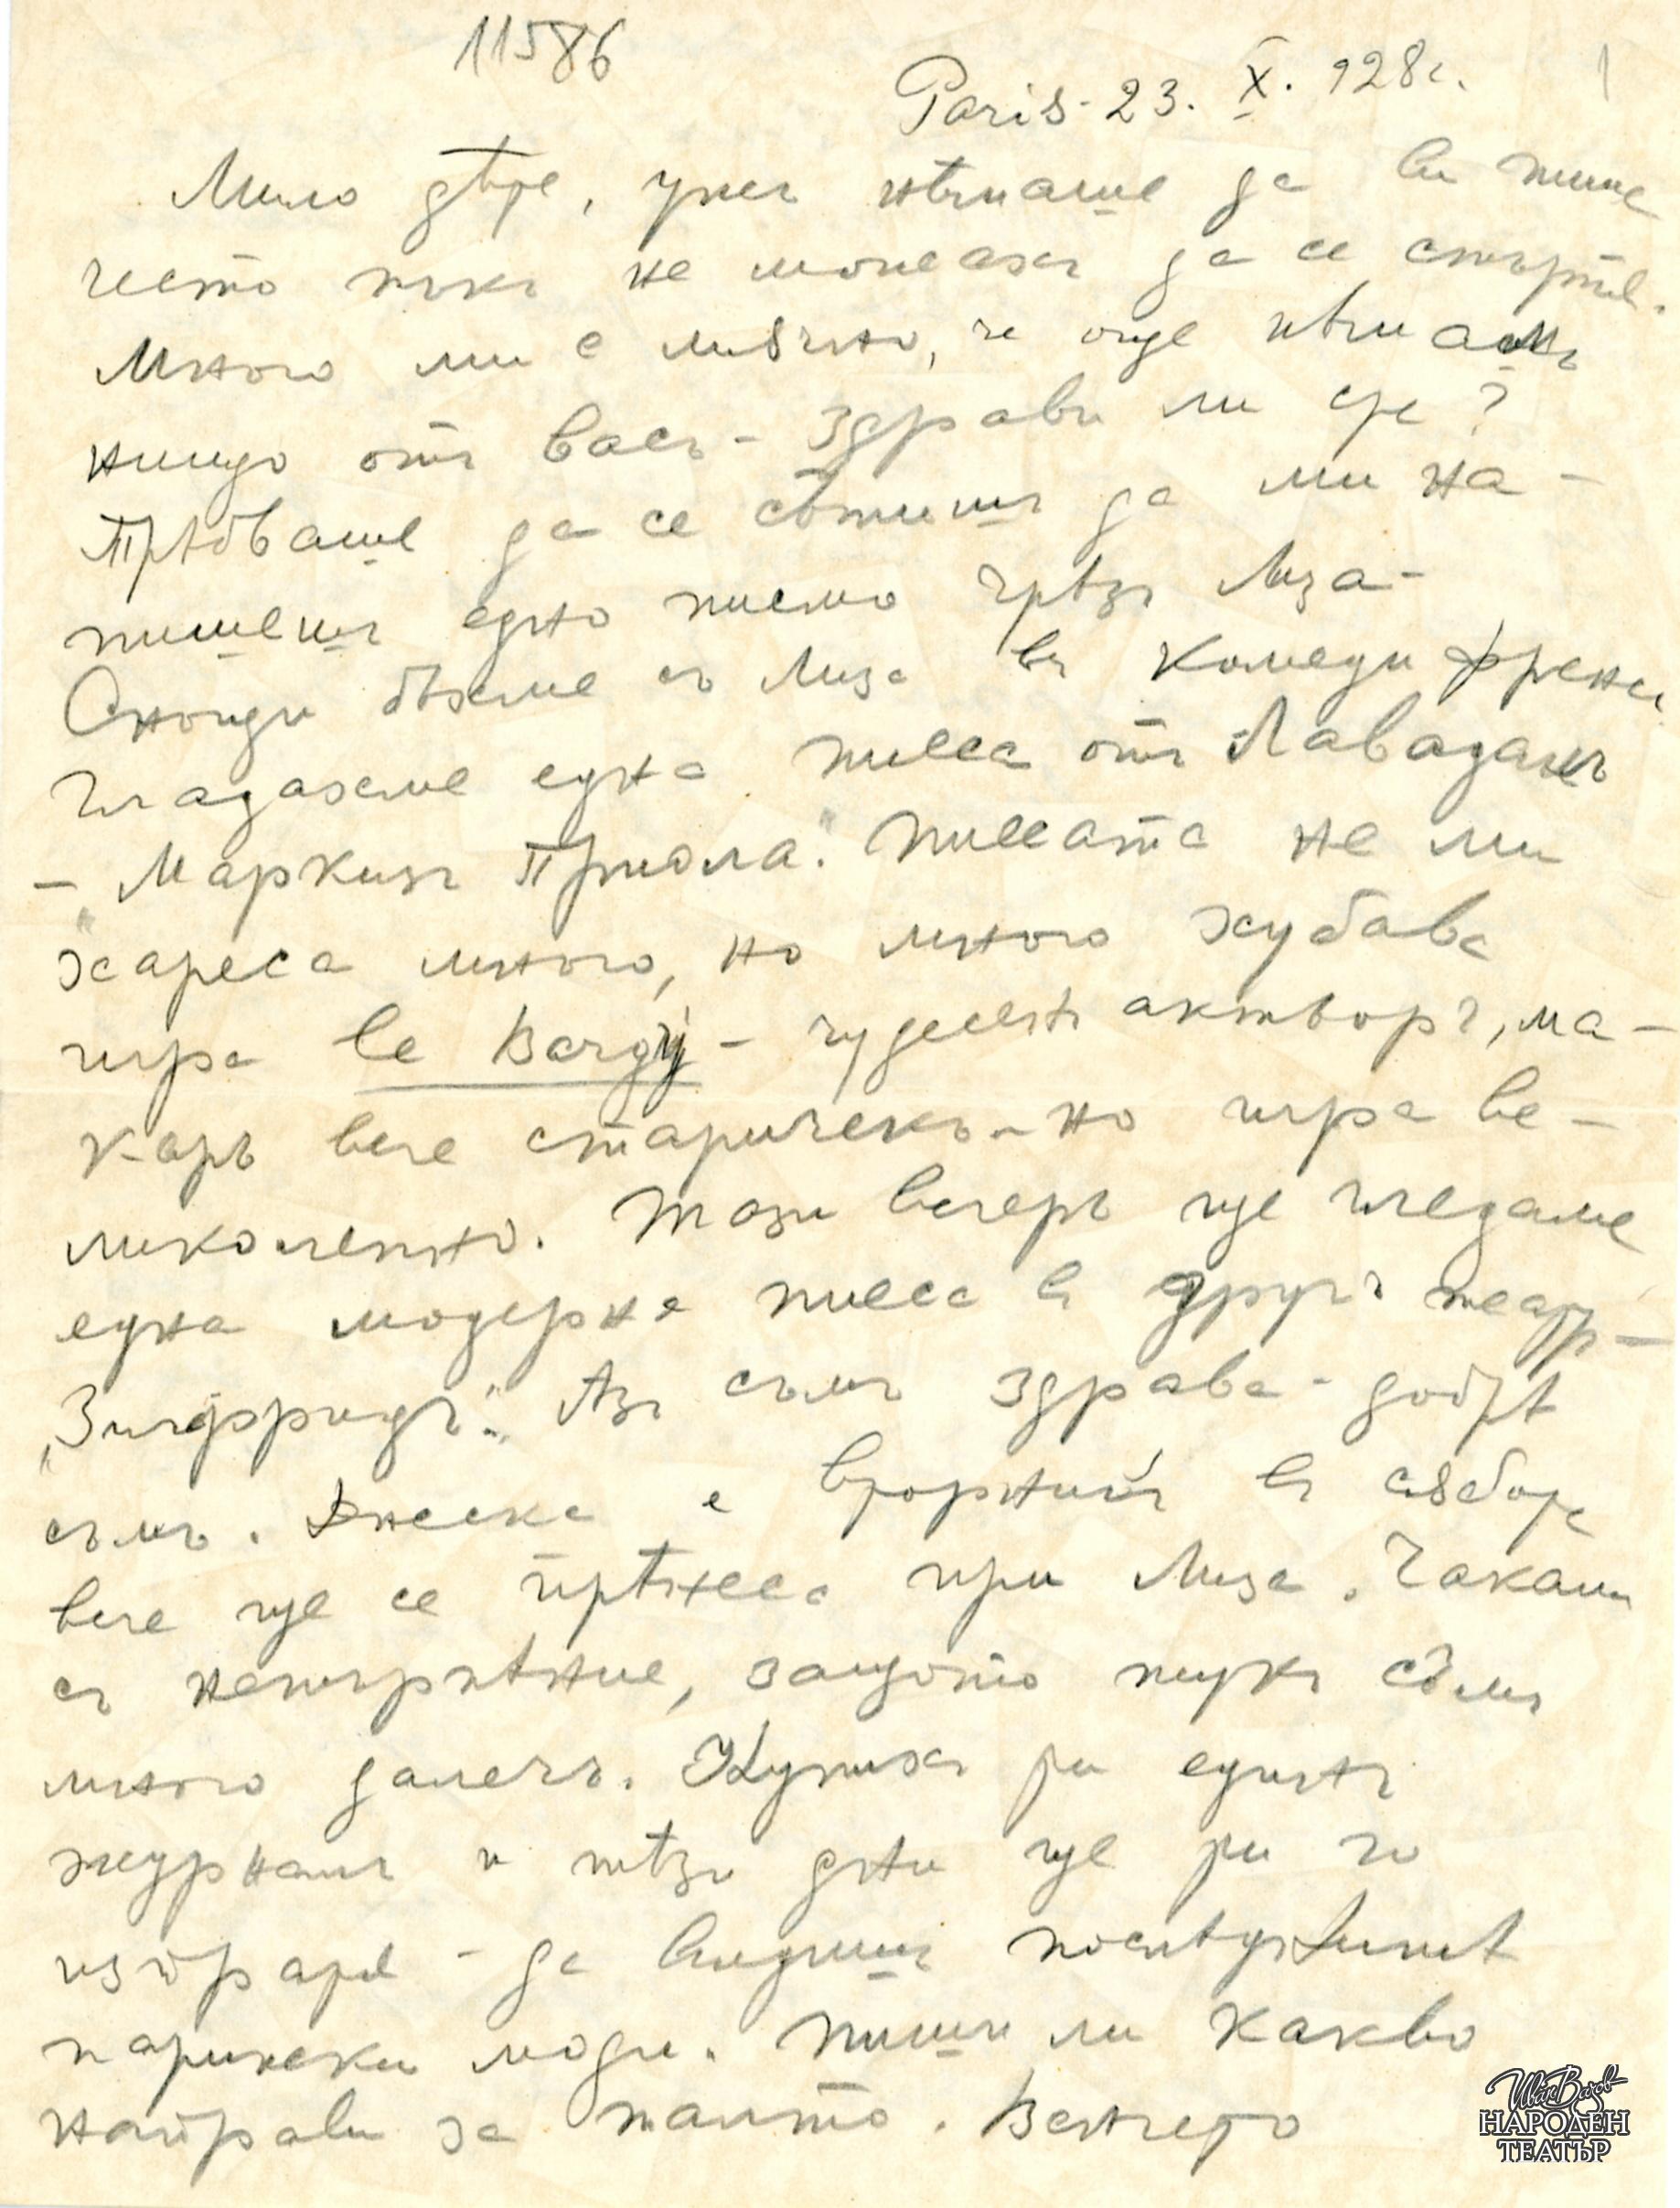 11586
1
Paris - 23. X. 928 г.
Мило дѣте, ужъ нѣмаше да ви пише
често пъкъ не можахъ да се стърпя.
Много ми е мѫчно, че още нѣмамъ
нищо отъ васъ - здрави ли сте?
Трѣбваше да се сѣтишъ да ми на-
пишешъ едно писмо чрѣзъ Лиза -
Снощи бѣхме съ Лиза въ Комеди Френсез
гладахме една пиеса отъ Лаваданъ
- „Маркизъ Приола." Пиесата не ми
хареса много, но много хубаво
игра Le Bargy - чудесенъ актьоръ, ма-
каръ вече старичекъ - но игра ве-
ликолепно. Тази вечеръ ще гледаме
една модерна пиеса въ другъ театр -
„Зигфридъ". Азъ съмъ здрава - добрѣ
съмъ. Днеска е вторникъ въ сѫбота
вече ще се прѣнеса при Лиза. Чакамъ
съ нетърпѣние, защото тукъ съмъ
много далечъ. Купихъ ти единъ
журналъ и тѣзи дни ще ти го
изпратя - да видишъ послѣднитѣ
парижски моди. Пиши ми какво
направи за палто. Венчето
Иван Вазов
НАРОДЕН
ТЕАТЪР